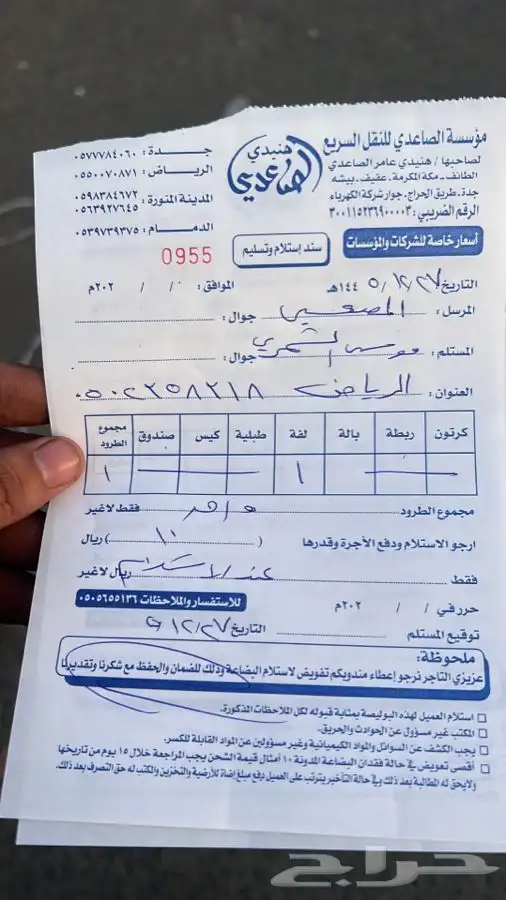 مؤسسة الصاعدي للنقل السريع
لصاحبها / هنيدي عامر الصاعدي
الطائف - مكة المكرمة. عفيف. بيشه
جدة - طريق الحراج. جوار شركة الكهرباء
الرقم الضريبي: ٣٠٠١١٥٢٣٦٩٠٠٠٠٣
أسعار خاصة للشركات والمؤسسات
هنيدي
الصاعدي
سند إستلام وتسليم
جدة : ٠٥٧٧٧٨٤٠٦٠
الرياض : ٠٥٥٠٠٧٠٨٧١
المدينة المنورة : ٠٥٩٨٣٨٤٦٧٢
٠٥٦٣٩٢٧٦٤٥
الدمام : ٠٥٣٩٧٣٩٣٧٥
0955
التاريخ ٢٧/١٢/١٤٤٥هـ الموافق : / / ٢٠٢م
المرسل : جوال :
المستلم : موسى الشمري جوال :
العنوان : الرياض ٠٥٠٢٢٥٨٢١٨
كرتون ربطة بالة لفة طبلية كيس صندوق مجموع الطرود
١ ١
مجموع الطرود واحد فقط لاغير
ارجو الاستلام ودفع الأجرة وقدرها ( ١٠ ) ريال
فقط عند الاستلام ريال لاغير
حرر في / / ٢٠٢م
للاستفسار والملاحظات ٠٥٠٥٦٥٥١٣٦
توقيع المستلم التاريخ ١٢/٢٧
ملحوظة:
عزيزي التاجر نرجو إعطاء مندوبكم تفويض لاستلام البضاعة وذلك للضمان والحفظ مع شكرنا وتقديرنا
استلام العميل لهذه البوليصة بمثابة قبوله لكل الملاحظات المذكورة.
المكتب غير مسؤول عن الحوادث والحريق.
يجب الكشف عن السوائل والمواد الكيميائية وغير مسؤولين عن المواد القابلة للكسر.
أقصى تعويض في حالة فقدان البضاعة المدونة ١٠ أمثال قيمة الشحن يجب المراجعة خلال ١٥ يوم من تاريخها
ولايحق له المطالبة بعد ذلك وفي حالة التأخير يترتب على العميل دفع مبلغ إضافة للأرضية والتخزين والمكتب له حق التصرف بعد ذلك.
حراج